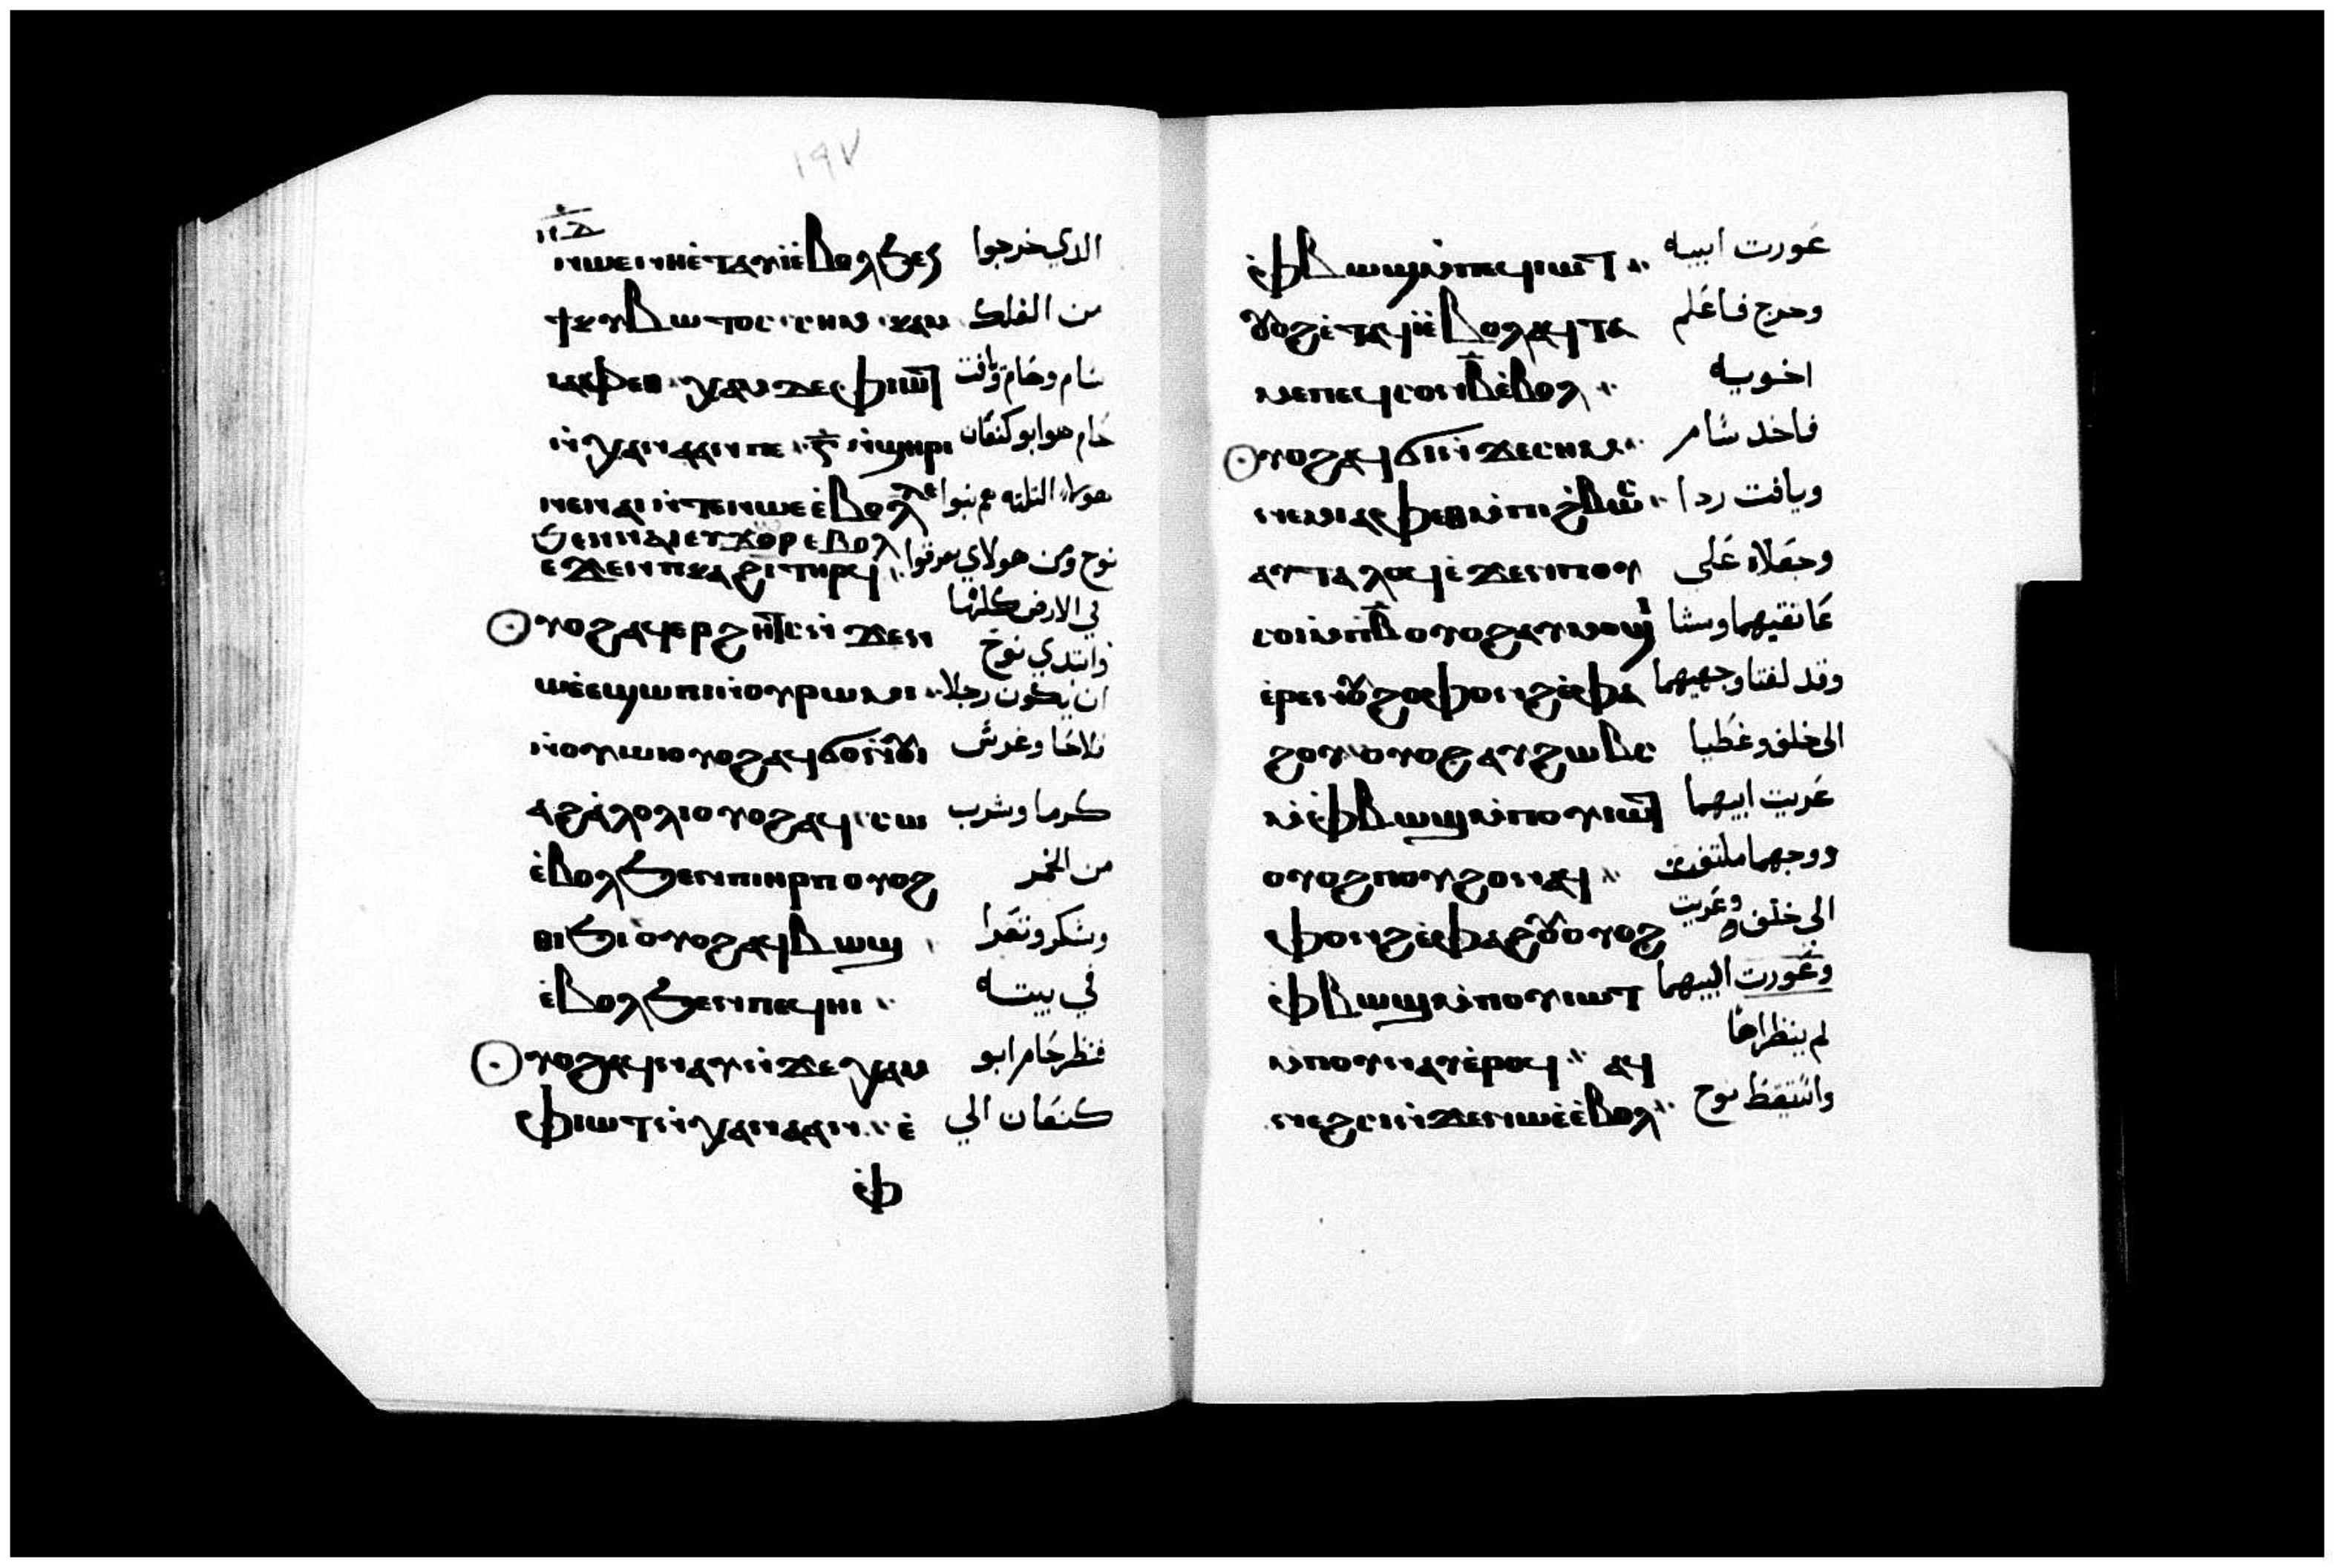 ١٩٧
ⲛⲱⲉ ⲛⲏⲉ̀ⲧⲁⲩⲓ̀ ⲉ̀ⲃⲟⲗ ϧⲉⲛ الدي خرجوا
ϯⲕⲩⲃⲱⲧⲟⲥ ⲥⲏⲙ ⲭⲁⲙ من الفلك
ⲓⲁⲫⲉⲑ ⲭⲁⲙ ⲇⲉ ⲫⲓⲱⲧ سام وحام ويافت
ⲛ̀ⲭⲁⲛⲁⲁⲛ ⲡⲉ ⲅ̅ ⲛ̀ϣⲏⲣⲓ حام هو ابو كنعان
ⲛⲉ ⲛⲁⲓ ⲛ̀ⲧⲉ ⲛⲱⲉ ⲉ̀ⲃⲟⲗ هولاء التلته هم بنوا
ϧⲉⲛ ⲛⲁⲓ ⲉⲩϫⲟⲣ ⲉⲃⲟⲗ نوح ومن هولاي تفرقوا
ⲉϫⲉⲛ ⲡⲕⲁϩⲓ ⲧⲏⲣϥ في الارض كلها
ⲟⲩⲟϩ ⲁϥⲉⲣϩⲏⲧⲥ ⲛ̀ϫⲉ ⲛ وابتدي نوح
ⲱⲉ ⲉ̀ϣⲱⲡⲓ ⲛ̀ⲟⲩⲣⲱⲙⲓ ان يكون رجلا
ⲛ̀ⲟⲩⲱⲓ ⲟⲩⲟϩ ⲁϥϭⲟ ⲛ̀ⲟⲩⲓ فلاحا وغرس
ⲁϩⲁ̀ⲗⲟⲗⲓ ⲟⲩⲟϩ ⲁϥⲥⲱ كرما وشرب
ⲉ̀ⲃⲟⲗ ϧⲉⲛ ⲡⲓⲏⲣⲡ ⲟⲩⲟϩ من الخمر
ⲑⲓϧⲓ ⲟⲩⲟϩ ⲁϥⲃⲱϣ وسكر وتعرا
ⲉ̀ⲃⲟⲗ ϧⲉⲛ ⲡⲉϥⲏⲓ في بيته
ⲟⲩⲟϩ ⲁϥⲛⲁⲩ ⲛ̀ϫⲉ ⲭⲁⲙ فنظر حام ابو
ⲫⲓⲱⲧ ⲛ̀ⲭⲁⲛⲁⲁⲛ ⲉ̀ كنعان الي
ⲉ̀ⲫ
ⲉ̀ⲫⲃⲱϣ ⲙ̀ⲡⲉϥⲓⲱⲧ عورت ابيه
ⲟⲩⲟϩ ⲉ̀ⲧⲁϥⲓ̀ ⲉ̀ⲃⲟⲗ ⲁϥⲧⲁ وخرج فاعلم
ⲙⲉ ⲡⲉϥⲥⲟⲛ ⲃ̅ ⲉ̀ⲃⲟⲗ اخويه
ⲟⲩⲟϩ ⲁϥϭⲓ ⲛ̀ϫⲉ ⲥⲏⲙ فاخد سام
ⲛⲉⲙ ⲓⲁⲫⲉⲑ ⲙ̀ⲡⲓϩⲃⲱⲥ ويافت ردا
ⲁⲩⲧⲁⲗⲟϥ ⲉ̀ϫⲉⲛ ⲡⲟⲩ وجعلاه علي
ⲥⲟⲓ ⲙ̀ⲡⲃ̅ ⲟⲩⲟϩ ⲁⲩⲙⲟϣⲓ عاتقيهما ومشا
ⲉ̀ⲣⲉ ⲛⲟⲩϩⲟ ⲫⲟⲛϩ ⲉ̀ⲫⲁ وقد لفتا وجهيهما
ϩⲟⲩ ⲟⲩⲟϩ ⲁⲩϩⲱⲃⲥ الى خلف وغطيا
ⲙ̀ⲉ̀ⲫⲃⲱϣ ⲙ̀ⲡⲟⲩⲓⲱⲧ عريت ابيهما
ⲟⲩⲟϩ ⲡⲟⲩϩⲟ ⲛⲁϥ ووجههما ملتفت
ⲫⲟⲛϩ ⲉ̀ⲫⲁϩⲟⲩ ⲟⲩⲟϩ الى خلف وعريت
ⲉ̀ⲫⲃⲱϣ ⲙ̀ⲡⲟⲩⲓⲱⲧ وعورت ابيهما
ⲙ̀ⲡⲟⲩⲛⲁⲩ ⲉ̀ⲣⲟϥ ⲁϥ لم ينظراها
ⲛⲉϩⲥⲓ ⲛ̀ϫⲉ ⲛⲱⲉ ⲉ̀ⲃⲟⲗ واستيقظ نوح